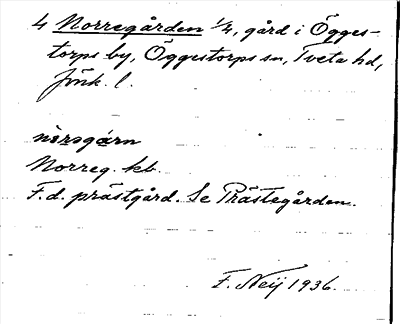 4 Norregården 1/4, gård i Ögges-
torps by, Öggestorps sn, Tveta hd,
Jönk. l.
nòrsgárn
Norreg. kb.
F.d. prästgård. Se Prästegården.
F. Neij 1936.